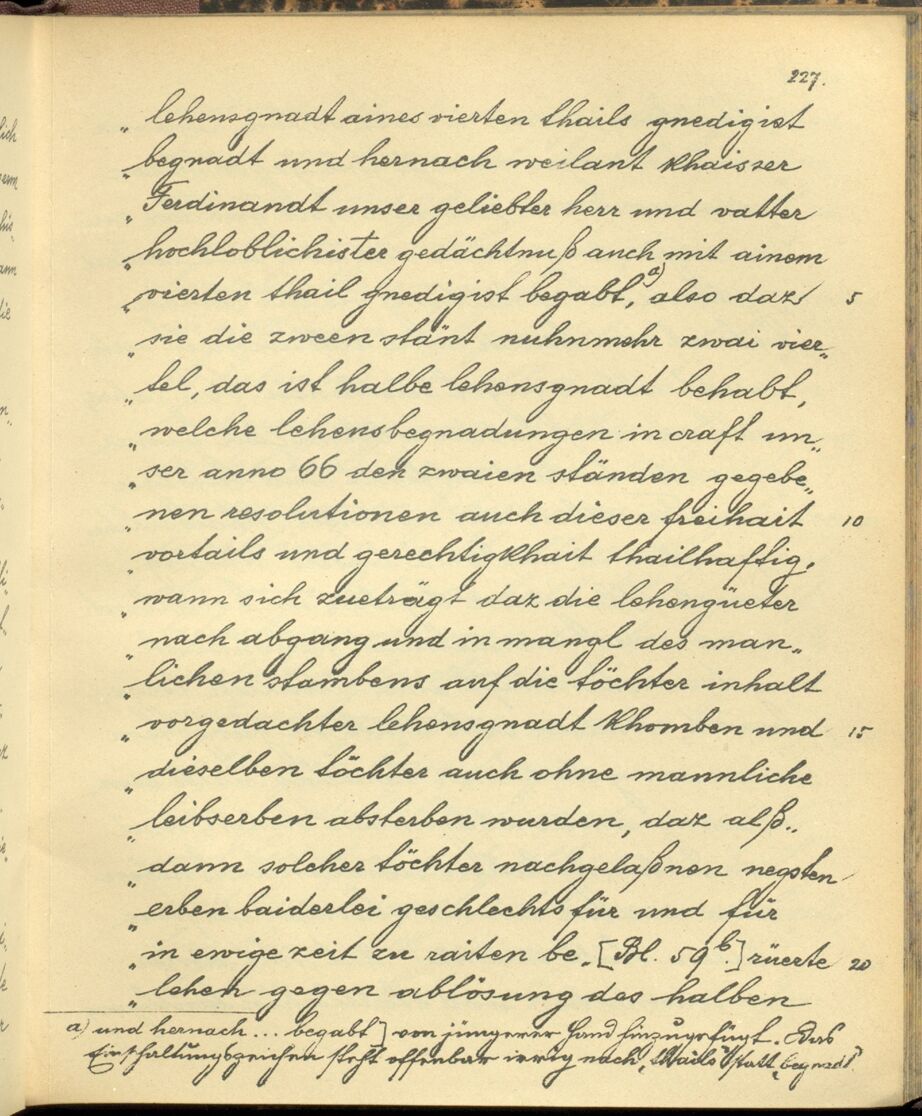 227.
„ lehensgnadt aines vierten thails gnedigist
„ begnadt und hernach weilant khaisser
„ Ferdinandt unser geliebter herr und vatter
„ hochloblichister gedächtnuß auch mit ainem
„ vierten thail gnedigist begabt,a) also daz 5
„ sie die zween stänt nuhnmehr zwai vier„
„ tel, das ist halbe lehensgnadt behabt,
„ welche lehensbegnadungen in craft un„
„ ser anno 66 den zwaien ständen gegebe„
„ nen resolutionen auch dieser freihait 10
„ vortails und gerechtigkhait thailhaftig,
„ wann sich zueträgt daz die lehengüeter
„ nach abgang und in mangl des man„
„ lichen stambens auf die töchter inhalt
„ vorgedachter lehensgnadt khomben und 15
„ dieselben töchter auch ohne mannliche
„ leibserben absterben wurden, daz alß„
„ dann solcher töchter nachgelaßnen negsten
„ erben baiderlei geschlechts für und für
„ in ewige zeit zu raiten be„ [Bl. 59b.] rüerte 20
„ lehen gegen ablösung des halben
a) und hernach ... begabt] von jüngerer Hand hinzugefügt. Das
Einschaltungszeichen steht offenbar irrig nach „thails“ statt „begnadt“.